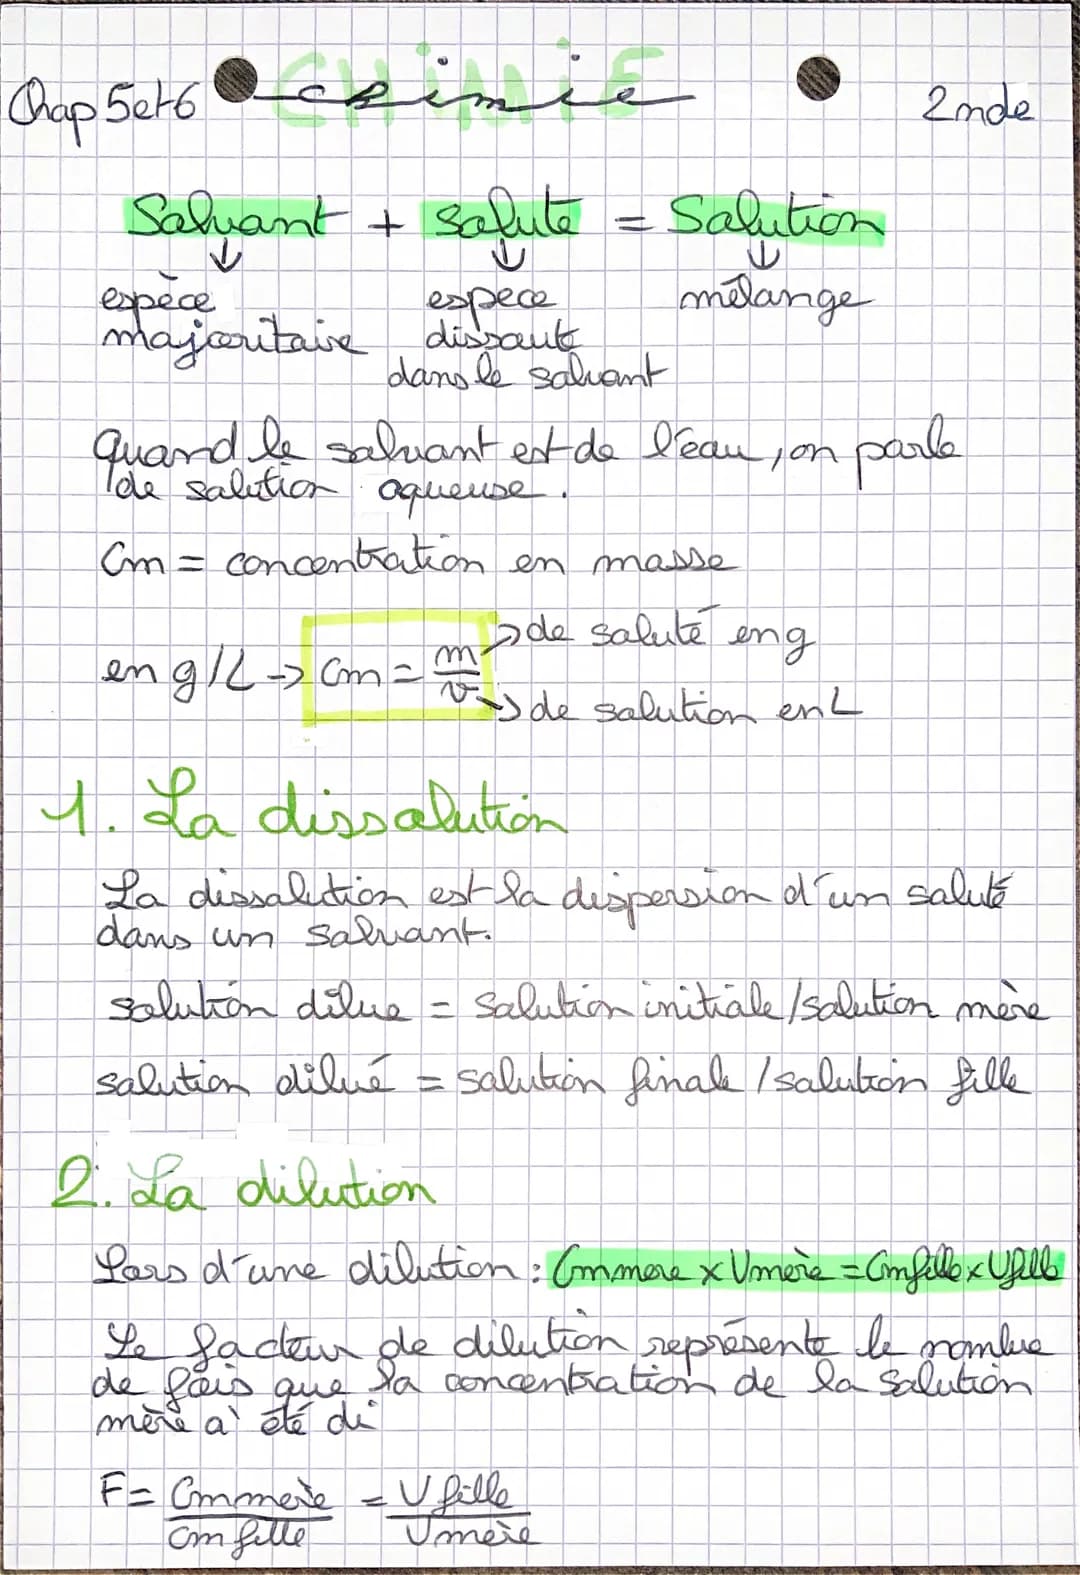 CHIMIE
Chap 5 et 6 chimie 2nde
Solvant + soluté = Solution
espèce espece mélange
majoritaire dissoute
dans le solvant
quand le solvant est de l'eau, on parle
de solution aqueuse.
Cm = concentration en masse
en g/L → Cm = m/v → de soluté en g
→ de solution en L
1. La dissolution
La dissolution est la dispersion d'un soluté
dans un solvant.
solution dilue = solution initiale / solution mère
solution dilué = solution finale / solution fille
2. La dilution
Lors d'une dilution : Cmmère x Vmère = Cmfille x Vfille
Le facteur de dilution représente le nombre
de fois que la concentration de la solution
mère à été di
F = Cmmère / Cm fille = V fille / Vmère